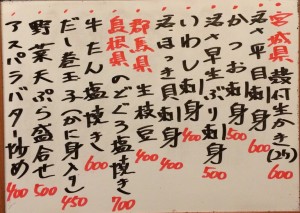 宮城県 殻付生かき(2ケ) 600
活〆平目刺身 600
かつお刺身 500
活〆早生ぶり刺身 500
いわし刺身 400
活ほっき貝刺身 400
群馬県 生枝豆 400
島根県 のどぐろ塩焼き 700
牛たん塩焼き 600
だし巻玉子(かに身入り) 450
野菜天ぷら盛合せ 500
アスパラバター炒め 400